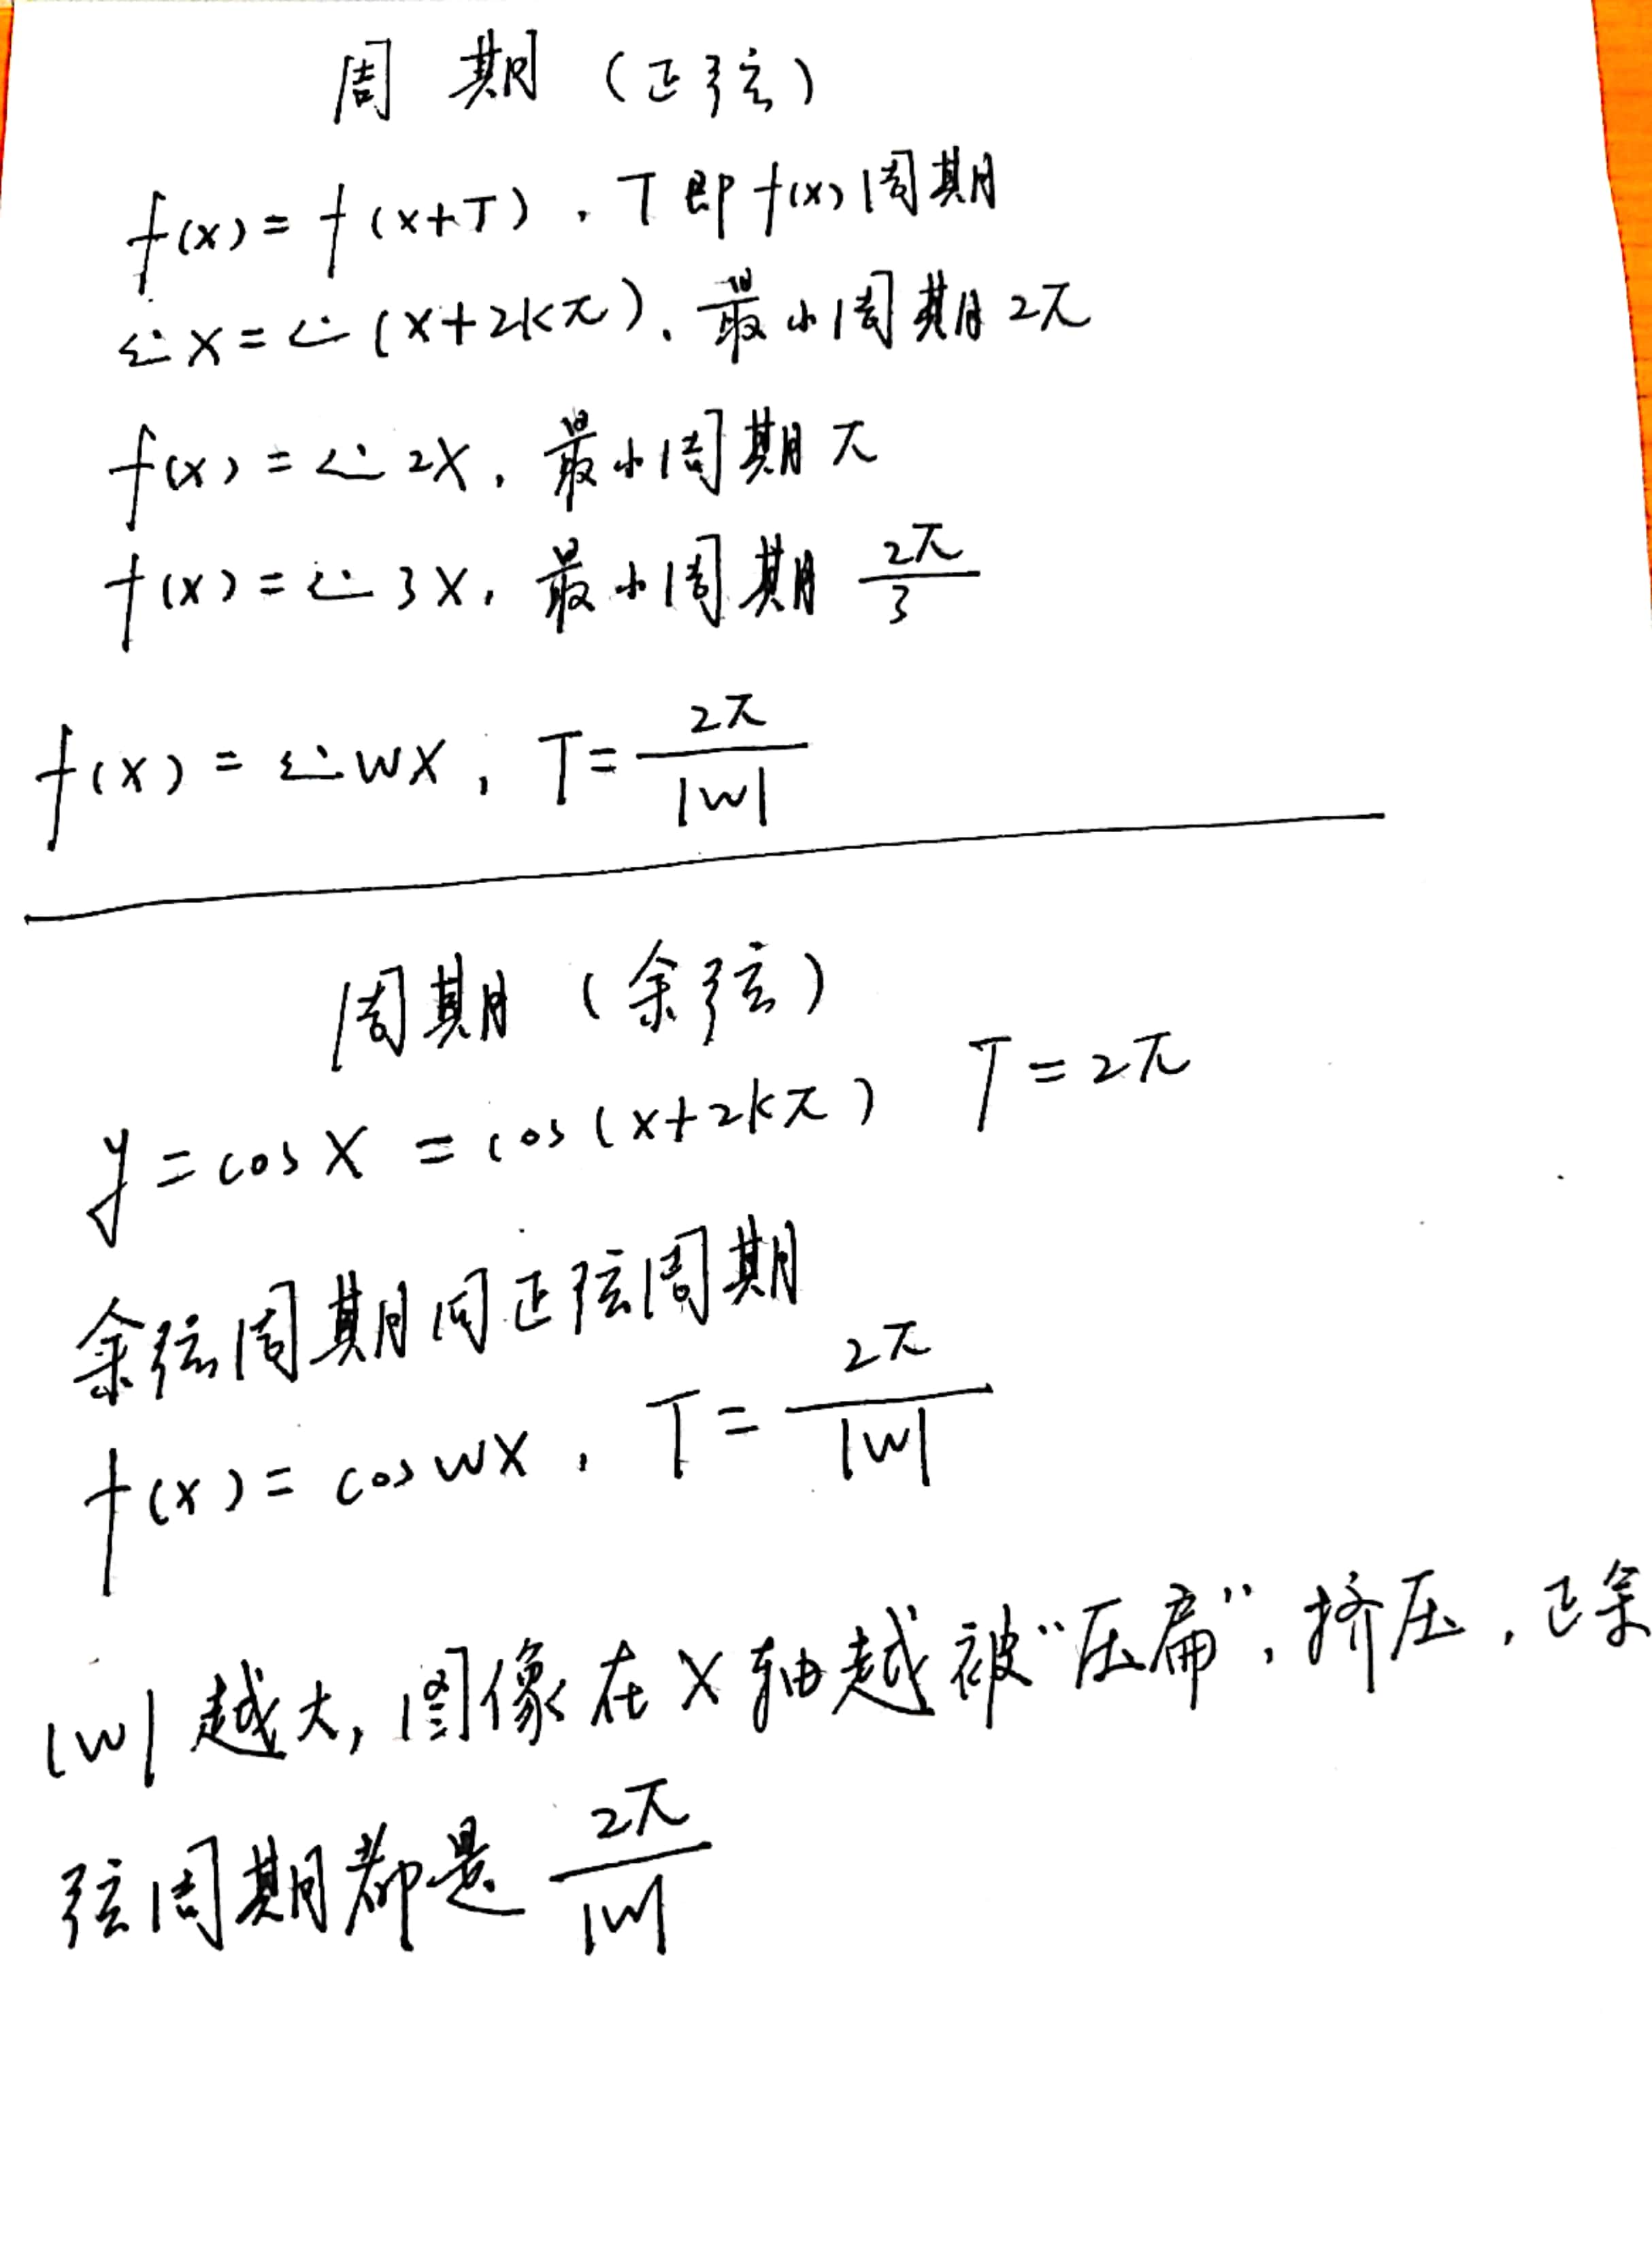 周期（正弦）
f(x)=f(x+T)，T即f(x)周期
sin x=sin(x+2kπ)、最小周期2π
f(x)=sin 2x，最小周期π
f(x)=sin 3x，最小周期 2π/3
f(x)=sin wx，T=2π/|w|
周期（余弦）
y=cos x=cos(x+2kπ) T=2π
余弦周期同正弦周期
f(x)=cos wx，T=2π/|w|
|w|越大，图像在x轴越被“压扁”，挤压，正余
弦周期都是 2π/|w|